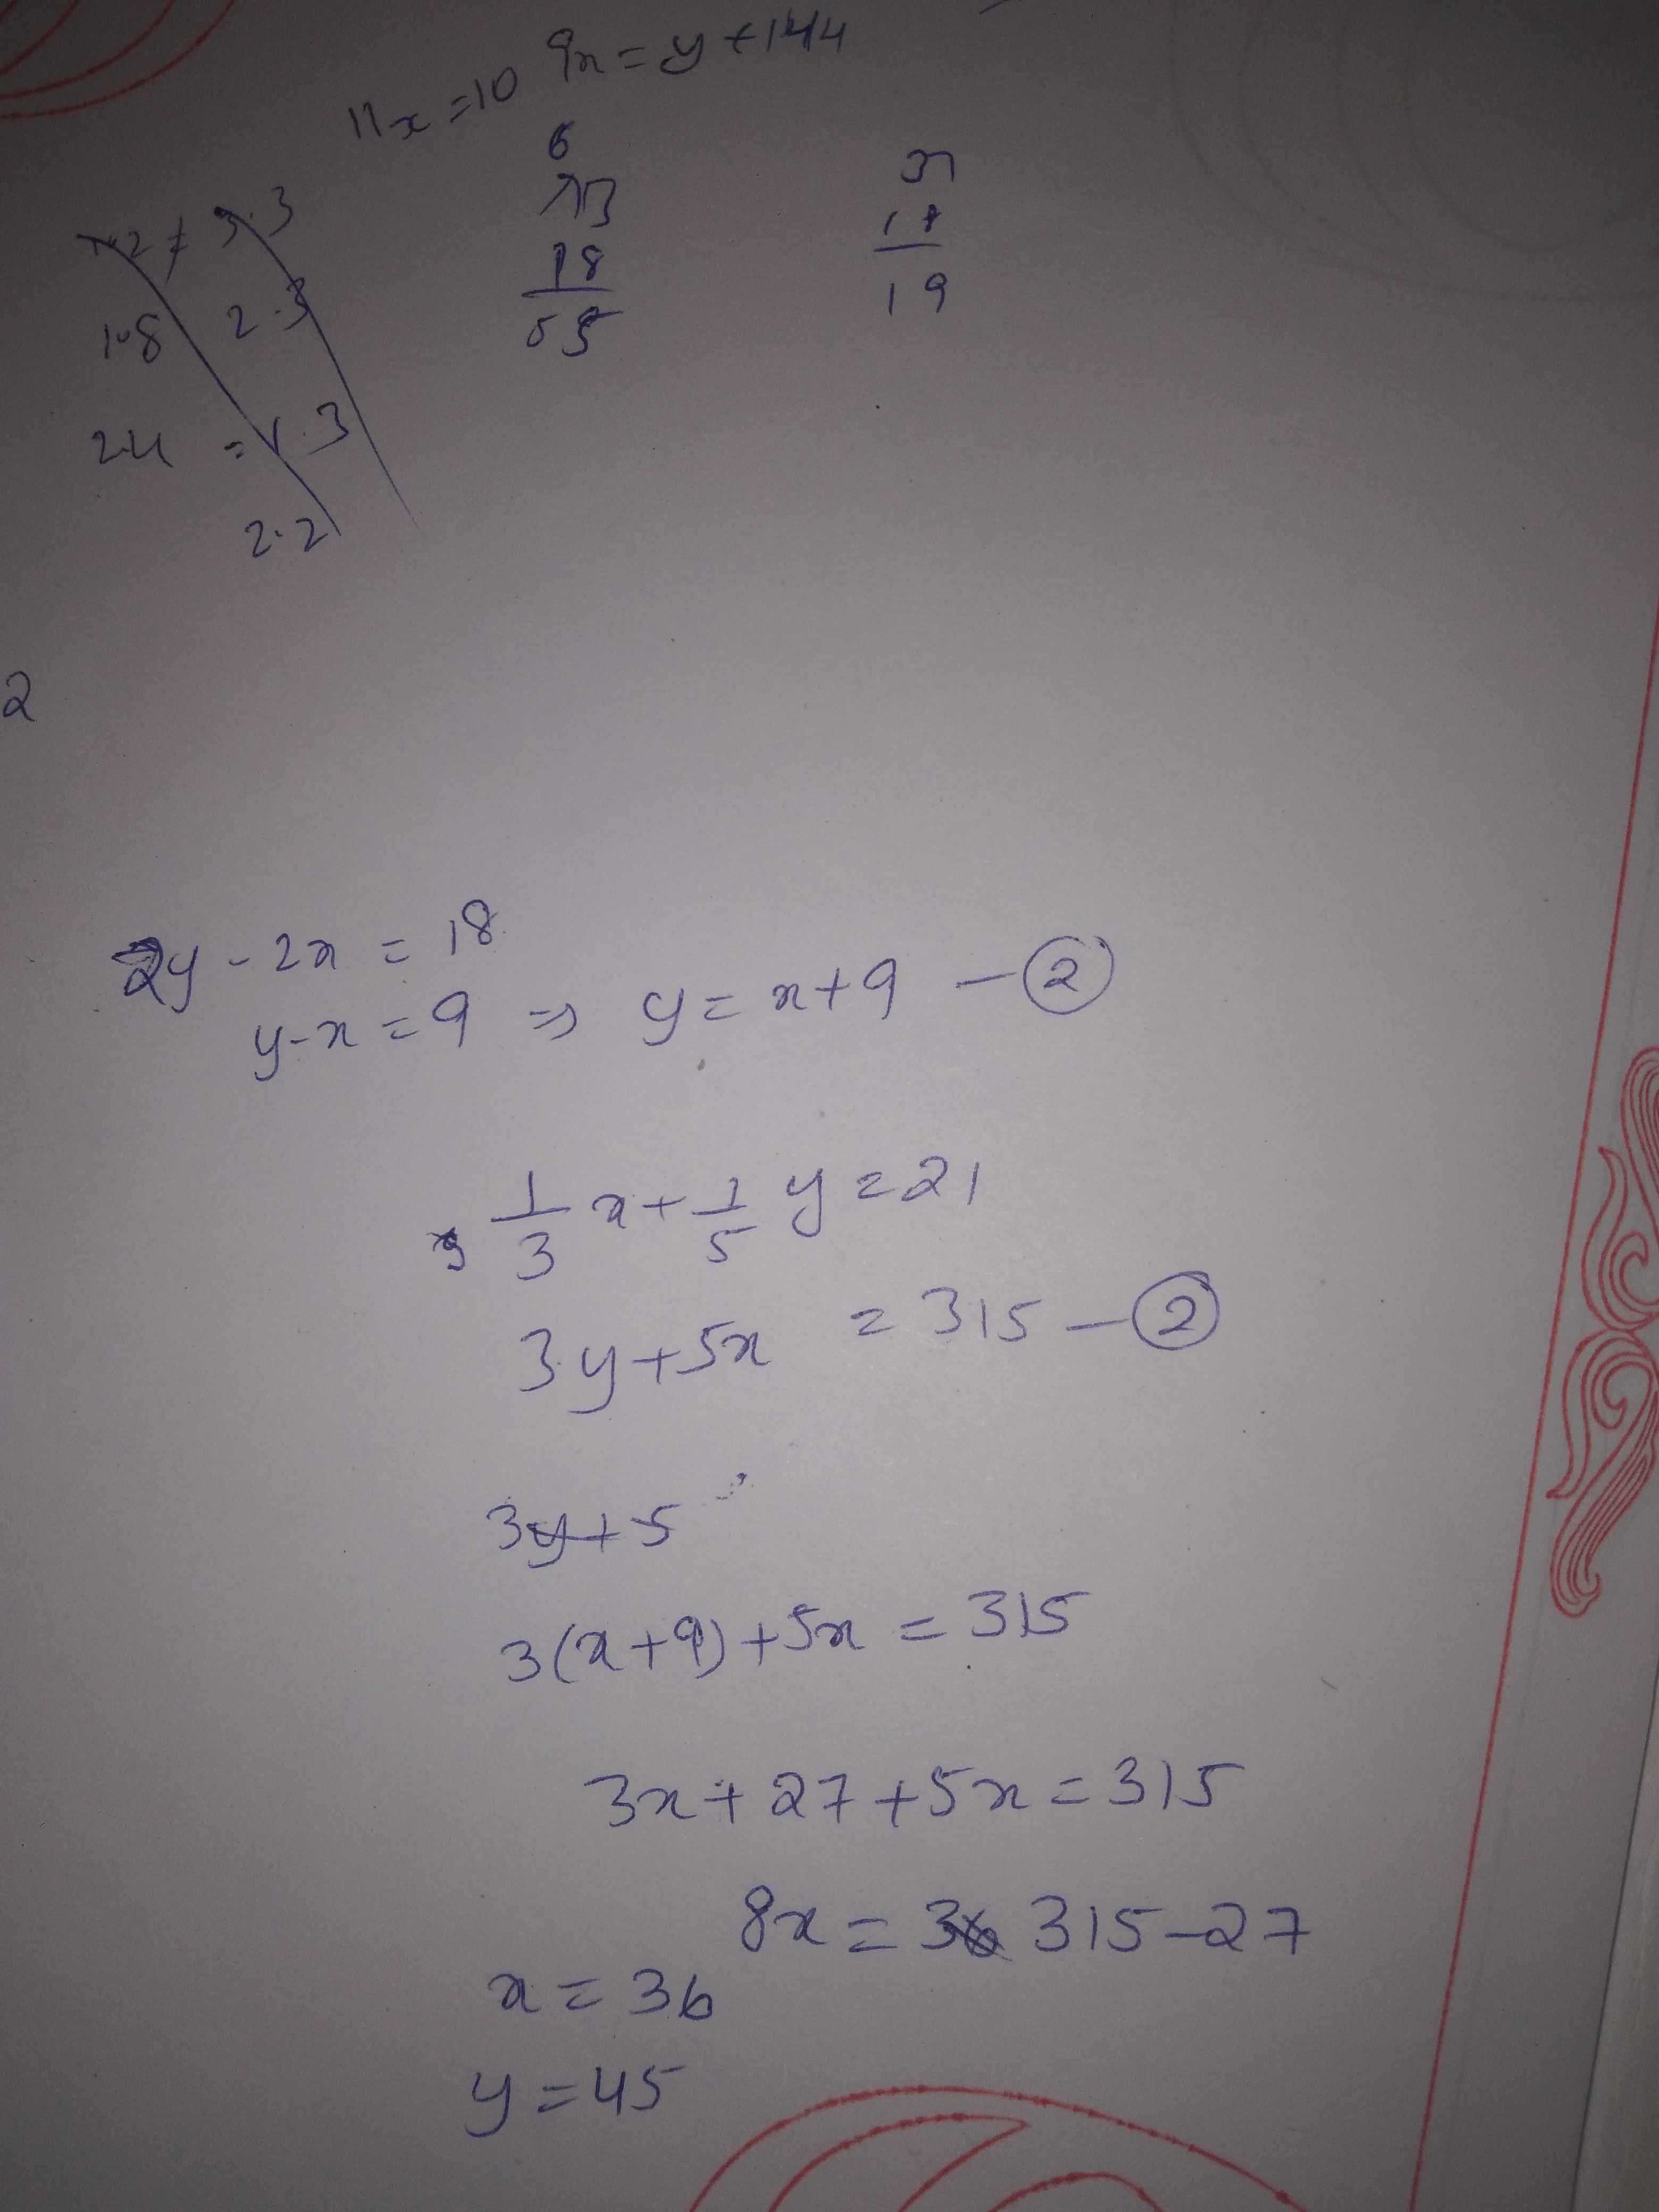 9x = y + 144
11x = 10
6
73
18
55
37
18
19
3.3
1.8 2.3
2.4 = 1.3
2.2
2
2y - 2x = 18
y-x = 9 ⇒ y = x+9 - ②
1/3 x + 1/5 y = 21
3y + 5x = 315 - ②
3y+5
3(x+9)+5x = 315
3x + 27 + 5x = 315
8x = 315-27
x = 36
y = 45